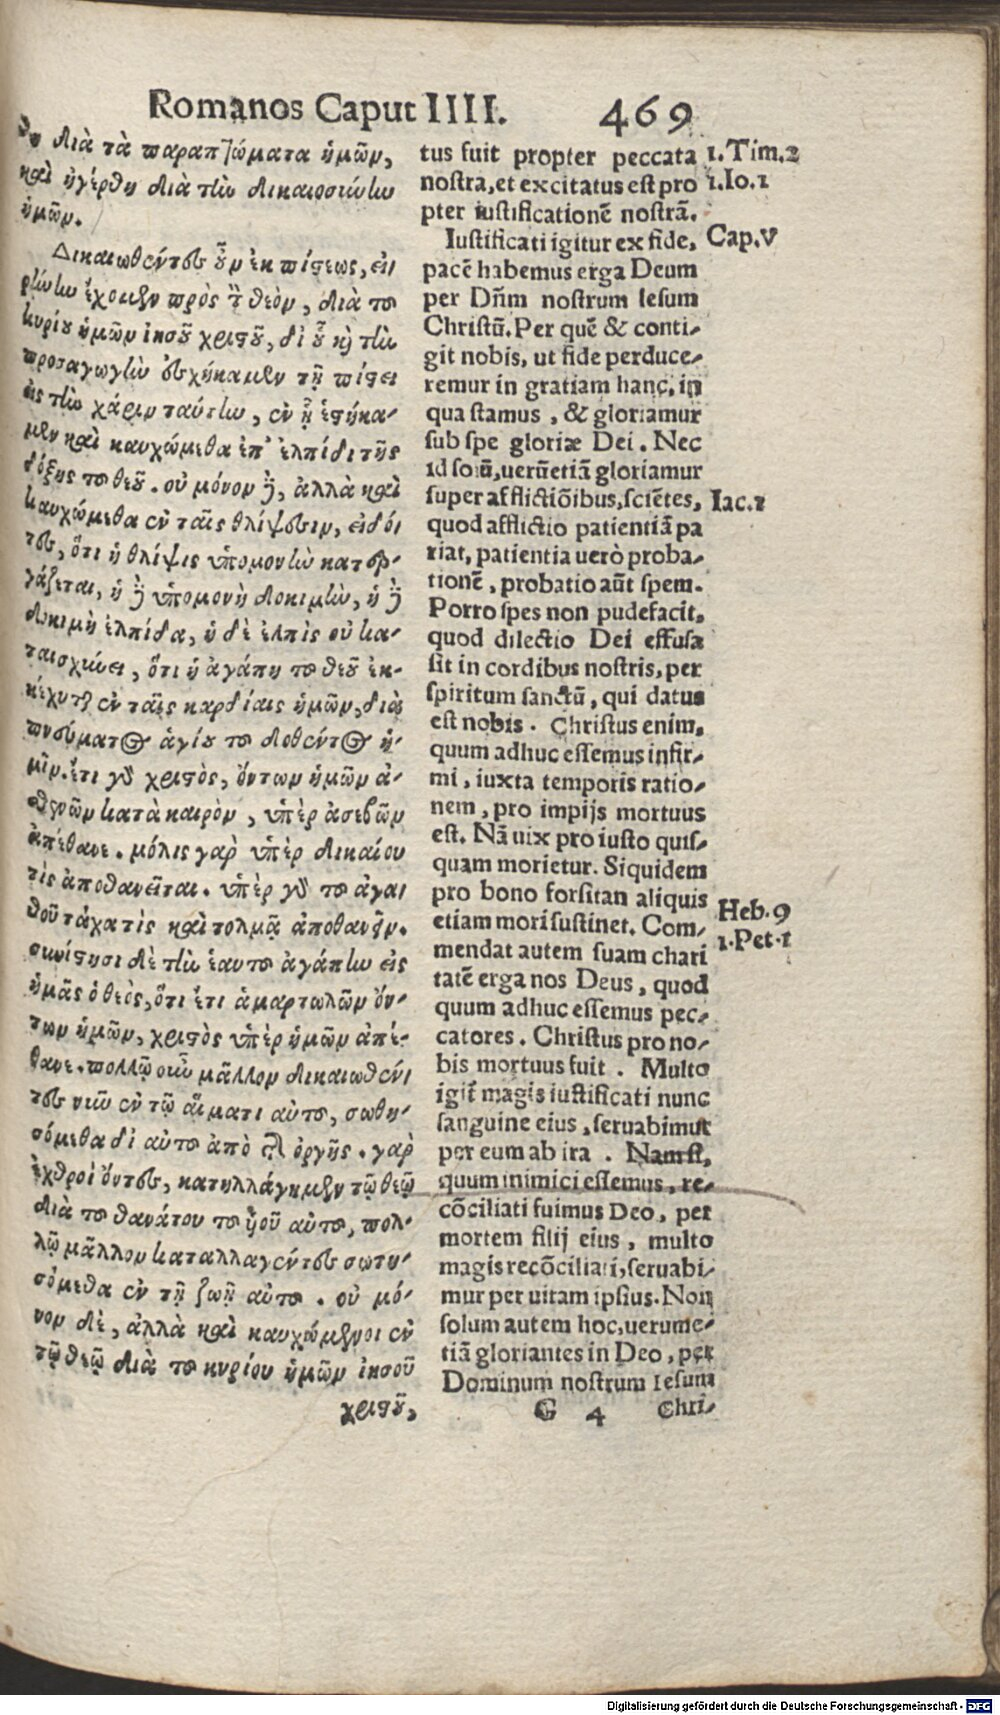 Romanos Caput IIII. 469
θη διὰ τὰ παραπτώματα ἡμῶν,
καὶ ἠγέρθη διὰ τὴν δικαιοσύνην
ἡμῶν.
Δικαιωθέντες οὖν ἐκ πίστεως, εἰ
ρήνην ἔχομεν πρὸς τὸν θεὸν, διὰ τοῦ
κυρίου ἡμῶν ἰησοῦ χριστοῦ, δι οὗ καὶ τὴν
προσαγωγὴν ἐσχήκαμεν τῇ πίστει
εἰς τὴν χάριν ταύτην, ἐν ᾗ ἑστήκα-
μεν καὶ καυχώμεθα ἐπ' ἐλπίδι τῆς
δόξης τοῦ θεοῦ. οὐ μόνον δὲ, ἀλλὰ καὶ
καυχώμεθα ἐν ταῖς θλίψεσιν, εἰδό
τες, ὅτι ἡ θλίψις ὑπομονὴν κατερ-
γάζεται, ἡ δὲ ὑπομονὴ δοκιμὴν, ἡ δὲ
δοκιμὴ ἐλπίδα, ἡ δὲ ἐλπὶς οὐ κα-
ταισχύνει, ὅτι ἡ ἀγάπη τοῦ θεοῦ ἐκ-
κέχυται ἐν ταῖς καρδίαις ἡμῶν, διὰ
πνεύματος ἁγίου τοῦ δοθέντος ἡ-
μῖν. ἔτι γὰρ χριστὸς, ὄντων ἡμῶν ἀ-
σθενῶν κατὰ καιρὸν, ὑπὲρ ἀσεβῶν
ἀπέθανε. μόλις γὰρ ὑπὲρ δικαίου
τὶς ἀποθανεῖται. ὑπὲρ γὰρ τοῦ ἀγα
θοῦ τάχα τὶς καὶ τολμᾷ ἀποθανεῖν.
συνίστησι δὲ τὴν ἑαυτοῦ ἀγάπην εἰς
ἡμᾶς ὁ θεὸς, ὅτι ἔτι ἁμαρτωλῶν ὄν-
των ἡμῶν, χριστὸς ὑπὲρ ἡμῶν ἀπέ-
θανε. πολλῷ οὖν μᾶλλον δικαιωθέν
τες νῦν ἐν τῷ αἵματι αὐτοῦ, σωθη-
σόμεθα δι αὐτοῦ ἀπὸ τῆς ὀργῆς. γὰρ
ἐχθροὶ ὄντες, κατηλλάγημεν τῷ θεῷ
διὰ τοῦ θανάτου τοῦ υἱοῦ αὐτοῦ, πολ-
λῷ μᾶλλον καταλλαγέντες σωτη-
σόμεθα ἐν τῇ ζωῇ αὐτοῦ. οὐ μό-
νον δὲ, ἀλλὰ καὶ καυχώμενοι ἐν
τῷ θεῷ διὰ τοῦ κυρίου ἡμῶν ἰησοῦ
χριστοῦ,
tus fuit propter peccata 1.Tim.2
nostra, et excitatus est pro 1.Io.1
pter iustificationē nostrā.
Iustificati igitur ex fide, Cap.V
pacē habemus erga Deum
per Dñm nostrum Iesum
Christū. Per quē & conti-
git nobis, ut fide perduce-
remur in gratiam hanc, in
qua stamus, & gloriamur
sub spe gloriæ Dei. Nec
id solū, uerūetiā gloriamur
super afflictiōibus, sciētes, Iac.1
quod afflictio patientiā pa
riat, patientia uerò proba-
tionē, probatio aūt spem.
Porro spes non pudefacit,
quod dilectio Dei effusa
sit in cordibus nostris, per
spiritum sanctū, qui datus
est nobis. Christus enim,
quum adhuc essemus infir-
mi, iuxta temporis ratio-
nem, pro impijs mortuus
est. Nā uix pro iusto quis-
quam morietur. Siquidem
pro bono forsitan aliquis Heb.9
etiam mori sustinet. Com- 1.Pet.1
mendat autem suam chari
tatē erga nos Deus, quod
quum adhuc essemus pec-
catores. Christus pro no-
bis mortuus fuit. Multo
igit̃ magis iustificati nunc
sanguine eius, seruabimur
per eum ab ira. Nam si,
quum inimici essemus, re-
cōciliati fuimus Deo, per
mortem filij eius, multo
magis recōciliati, seruabi-
mur per uitam ipsius. Non
solum autem hoc, uerume-
tiā gloriantes in Deo, per
Dominum nostrum Iesum
G 4 Chri-
Digitalisierung gefördert durch die Deutsche Forschungsgemeinschaft - DFG